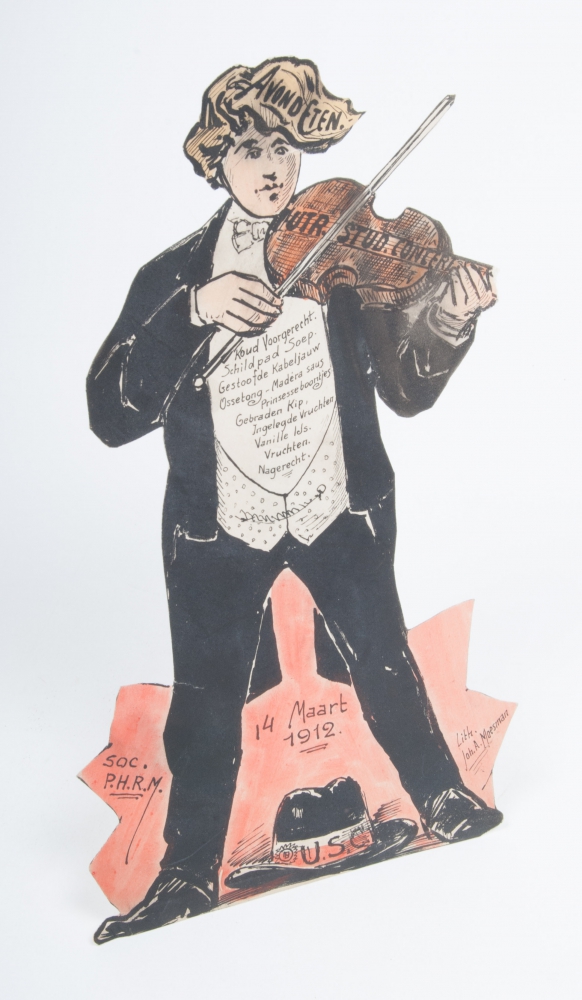 AVONDETEN.
UTR. STUD. CONCERT
Koud Voorgerecht.
Schildpad Soep.
Gestoofde Kabeljauw
Ossetong - Madera saus
Prinsesseboontjes
Gebraden Kip.
Ingelegde Vruchten
Vanille IJs.
Vruchten.
Nagerecht.
14 Maart
1912.
SOC.
P.H.R.M.
Lith.
Joh. A. Moesman
U.S.C.